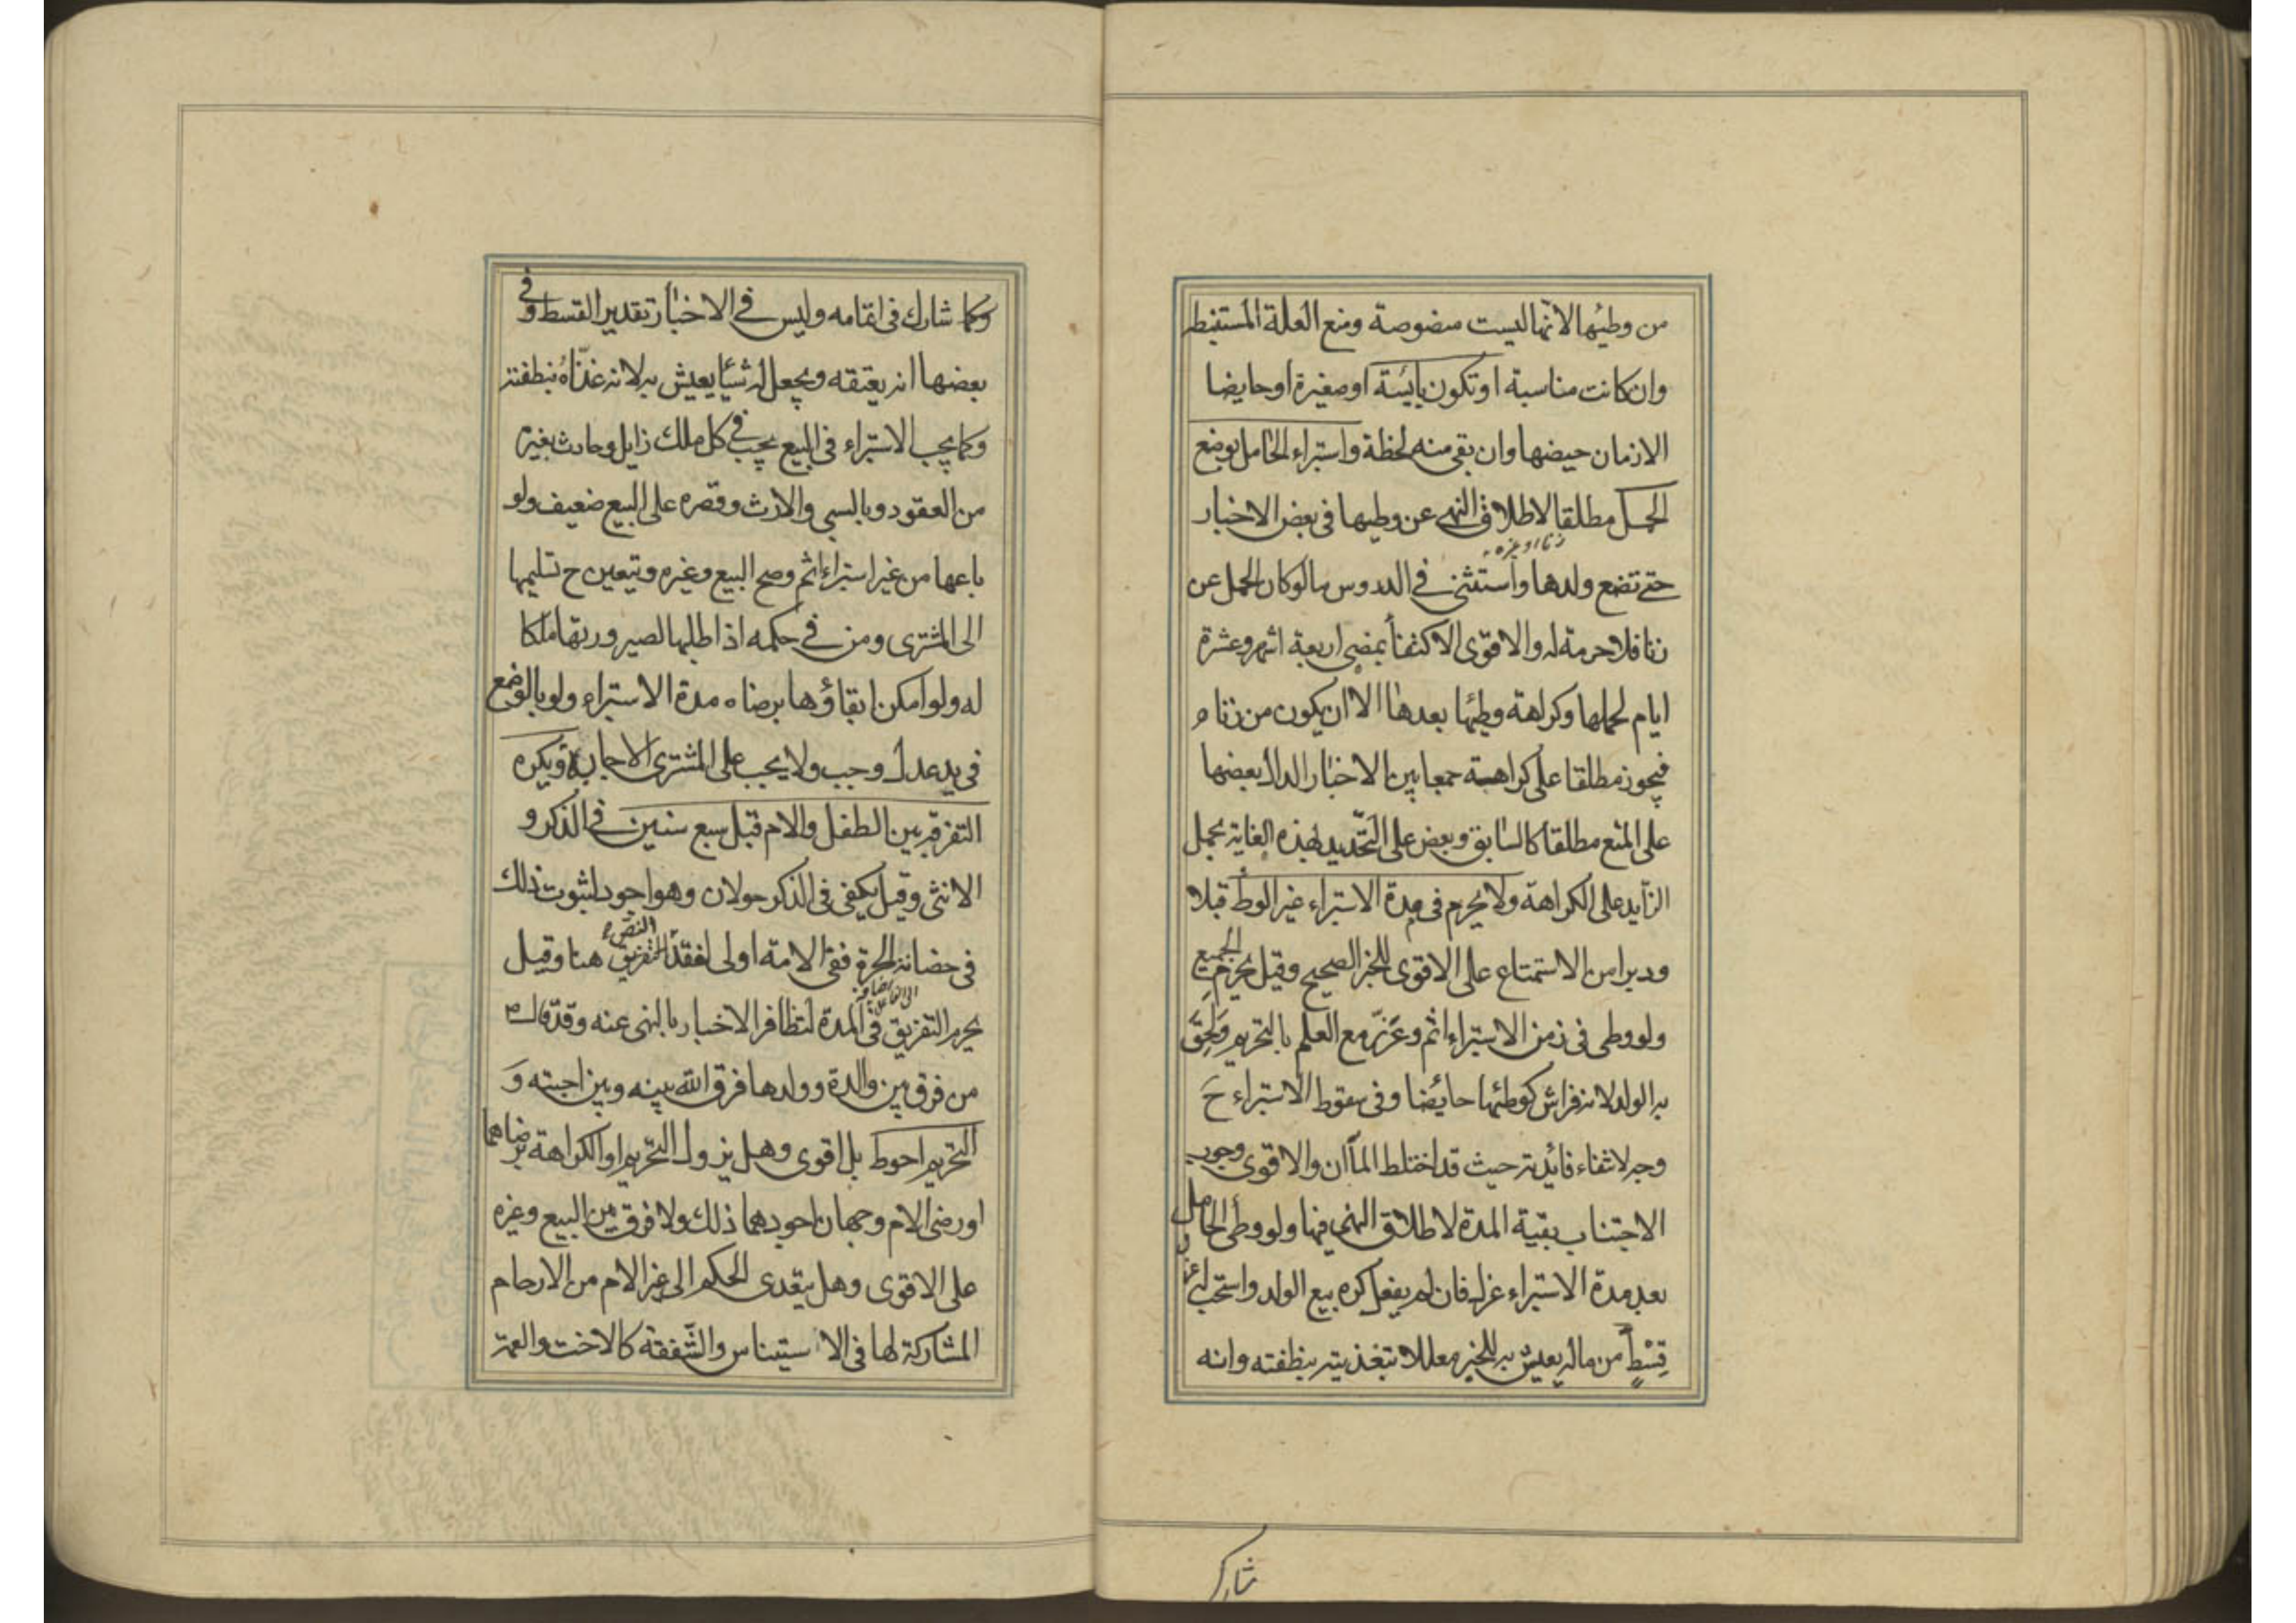 من وطئها لانها ليست منصوصة ومنع العلة المستنبطه
وان كانت مناسبة او تكون يائسة او صغيرة او حايضا
الا زمان حيضها وان بقي منه لحظة واستبراء الحامل بوضع
الحمل مطلقا لاطلاق النهي عن وطيها في بعض الاخبار
زنا او غيره
حتى تضع ولدها واستثنى في الدروس ما لو كان الحمل عن
زنا فلا حرمة له والاقوى الاكتفاء بمضي اربعة اشهر وعشرة
ايام لحملها وكراهة وطئها بعدها الا ان يكون من زناء
فيجوز مطلقا على كراهية جمعا بين الاخبار الدال بعضها
على المنع مطلقا كالسابق وبعض على التحديد بهذه الغاية بحمل
الزايد على الكراهة ولا يحرم في مدة الاستبراء غير الوطء قبلا
ودبرا من الاستمتاع على الاقوى للخبر الصحيح وقيل يحرم الجميع
ولو وطى في زمن الاستبراء اثم وعزر مع العلم بالتحريم ولحق
به الولد لانه فراش كوطئها حايضا وفي سقوط الاستبراء ح
وجه لانتفاء فائدته حيث قد اختلط الماآن والاقوى وجوب
الاجتناب بقية المدة لاطلاق النهي فيها ولو وطئ الحامل
بعد مدة الاستبراء عزل فان لم يفعل كره بيع الولد واستحب له عزل
قسط من ماله يعيش به للخبر معللا بتغذيته بنطفته وانه
شارك
وكما شارك في اتمامه وليس في الاخبار تقدير القسط وفي
بعضها انه يعتقه ويجعل له شيئا يعيش به لانه غذاه بنطفته
وكما يجب الاستبراء في البيع يجب في كل ملك زايل وحادث بغيره
من العقود وبالسبي والارث وقصره على البيع ضعيف ولو
باعها من غير استبراء اثم وصح البيع وغيره ويتعين ح تسليمها
الى المشتري ومن في حكمه اذا طلبها لصيرورتها ملكا
له ولو امكن ابقاؤها برضاه مدة الاستبراء ولو بالوضع
في يد عدل وجب ولا يجب على المشتري الاجابة ويكره
التفرقة بين الطفل والام قبل سبع سنين في الذكر و
الانثى وقيل يكفي في الذكر حولان وهو اجود لثبوت ذلك
في حضانة الحرة ففي الامة اولى لفقد النص بالتفريق هنا وقيل
يحرم التفريق في المدة لتظافر الاخبار بالنهي عنه وقد قال ص
من فرق بين والدة وولدها فرق الله بينه وبين احبته و
التحريم احوط بل اقوى وهل يزول التحريم او الكراهة برضاهما
او رضى الام وجهان اجودهما ذلك ولا فرق بين البيع وغيره
على الاقوى وهل يتعدى الحكم الى غير الام من الارحام
المشاركة لها في الاستيناس والشفقة كالاخت والعمة